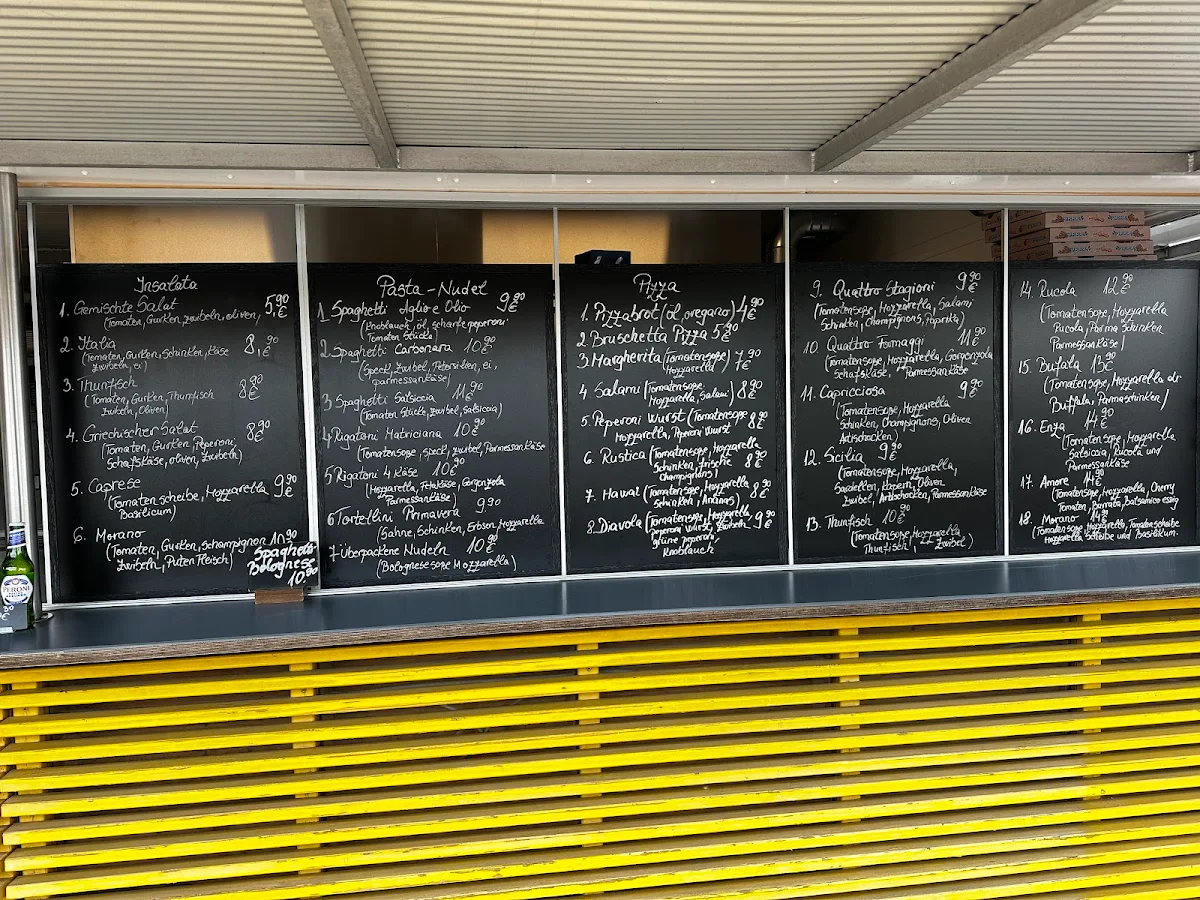 Insalata
1. Gemischte Salat 5,90
(Tomaten, Gurken, zwibeln, oliven,
2. Italia
(Tomaten, Gurken, Schinken, Käse 8,90 €
Zwibeln, ei)
3. Thunfisch
(Tomaten, Gurken, Thunfisch 8 90 €
Zwibeln, Oliven)
4. Griechischer Salat 8 90 €
(Tomaten, Gurken, Peperoni,
Schafskäse, oliven, Zwibeln)
5. Caprese
(Tomaten scheibe, Mozzarella 9 90 €
Basilicum)
6. Morano
(Tomaten, Gurken, Schampignon 10 90
Zwibeln, Puten Fleisch)
Spaghetti
Bolognese
10,90
Pasta - Nudel
1. Spaghetti Aglio e Olio 9 90 €
(Knoblauch, öl, scharfe peperoni
Tomaten Stücke)
2. Spaghetti Carbonara 10 90 €
(Speck, Zwibel, Petersilien, ei,
parmessankäse)
3. Spaghetti Salsiccia 11 90 €
(Tomaten Stücke, Zwibel, Salsiccia)
4 Rigatoni Matriciana 10 90 €
(Tomatensope, Speck, Zwibel, Parmessankäse
5 Rigatoni 4 Käse 10 90 €
(Mozzarella, Fetakäse, Gorgonzola
Parmessankäse)
6 Tortellini Primavera 9 90
(Sahne, Schinken, Erbsen, Mozzarella
7 Überpackene Nudeln 10 90 €
(Bolognesesope Mozzarella)
Pizza
1. Pizzabrot (öl, oregano) 4 90 €
2 Bruschetta Pizza 5 90 €
3 Margherita (Tomatensope) 7 90 €
Mozzarella
4. Salami (Tomatensope, 8 90 €
Mozzarella, Salami)
5. Peperoni Wurst (Tomatensope 8 90 €
Mozzarella, Peperoni Wurst
6. Rustica (Tomatensope, Mozzarella
Schinken, frische 8 90 €
Champignons)
7. Hawai (Tomatensope, Mozzarella 8 90 €
Schinken, Ananas)
8. Diavola (Tomatensope, Mozzarella
peperoni Wurst, Zwibeln 9 90 €
grüne peperoni
Knoblauch
9. Quattro Stagioni 9 90 €
(Tomatensope, Mozzarella, Salami
Schinken, Champignons, Paprika)
10. Quattro Formaggi 11 90 €
(Tomatensope, Mozzarella, Gorgonzola
Schafskäse, Parmessankäse
11. Capricciosa 9 90 €
(Tomatensope, Mozzarella
Schinken, Champignons, Oliven
Artischocken)
12. Sicilia 9 90 €
(Tomatensope, Mozzarella,
Sardellen, Kapern, Oliven
Zwibel, Artischocken, Parmessankäse
13. Thunfisch 10 90 €
(Tomatensope, Mozzarella
Thunfisch, Zwibel)
14. Rucola 12 90 €
(Tomatensope, Mozzarella
Rucola, Parma Schinken
Parmessankäse)
15. Bufala 13 90 €
(Tomatensope, Mozzarella di
Buffala, Parmaschinken)
16. Enza 14 90 €
(Tomatensope, Mozzarella
Salsiccia, Rucola und
Parmessankäse
17. Amore 14 90 €
(Tomatensope, Mozzarella, Cherry
Tomaten, Burrata, Balsamico essig
18. Morano 14 90 €
(Tomatensope, Mozzarella, Tomatenscheibe
Mozzarella Scheibe und Basilikum.
PERONI